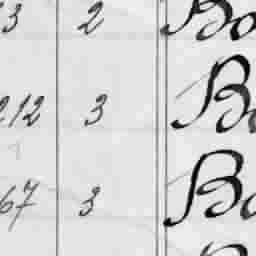 3 2 Bo
212 3 Bo
67 3 Bo